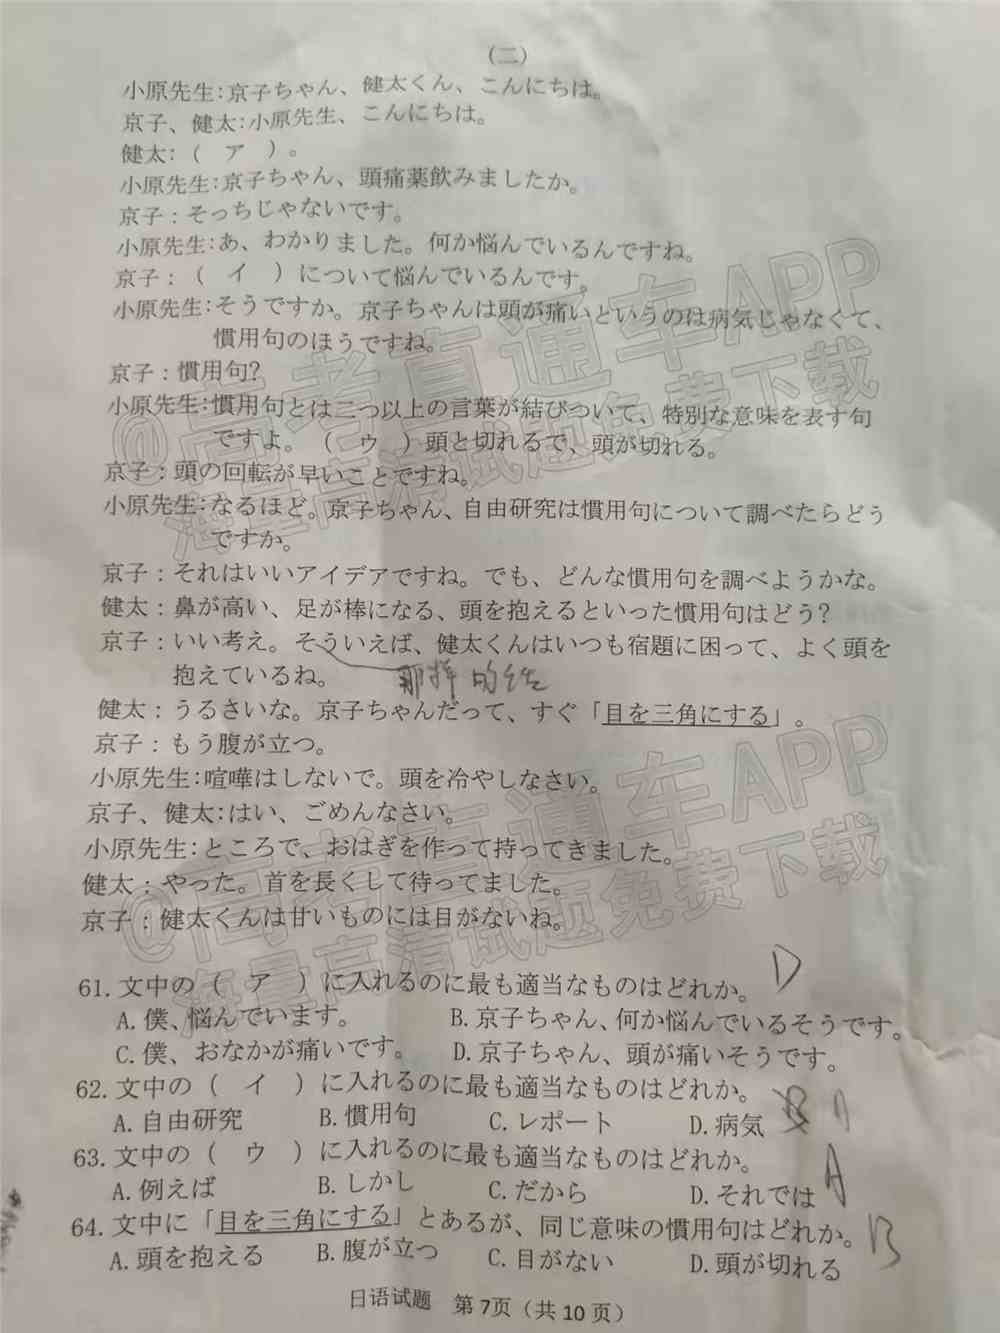 （二）
小原先生:京子ちゃん、健太くん、こんにちは。
京子、健太:小原先生、こんにちは。
健太:（　ア　）。
小原先生:京子ちゃん、頭痛薬飲みましたか。
京子：そっちじゃないです。
小原先生:あ、わかりました。何か悩んでいるんですね。
京子：（　イ　）について悩んでいるんです。
小原先生:そうですか。京子ちゃんは頭が痛いというのは病気じゃなくて、
慣用句のほうですね。
京子：慣用句?
小原先生:慣用句とは二つ以上の言葉が結びついて、特別な意味を表す句
ですよ。（　ウ　）頭と切れるで、頭が切れる。
京子：頭の回転が早いことですね。
小原先生:なるほど。京子ちゃん、自由研究は慣用句について調べたらどう
ですか。
京子：それはいいアイデアですね。でも、どんな慣用句を調べようかな。
健太：鼻が高い、足が棒になる、頭を抱えるといった慣用句はどう?
京子：いい考え。そういえば、健太くんはいつも宿題に困って、よく頭を
抱えているね。
那样的经
健太：うるさいな。京子ちゃんだって、すぐ「目を三角にする」。
京子：もう腹が立つ。
小原先生:喧嘩はしないで。頭を冷やしなさい。
京子、健太:はい、ごめんなさい。
小原先生:ところで、おはぎを作って持ってきました。
健太：やった。首を長くして待ってました。
京子：健太くんは甘いものには目がないね。
61. 文中の（　ア　）に入れるのに最も適当なものはどれか。 D
A. 僕、悩んでいます。 B. 京子ちゃん、何か悩んでいるそうです。
C. 僕、おなかが痛いです。 D. 京子ちゃん、頭が痛いそうです。
62. 文中の（　イ　）に入れるのに最も適当なものはどれか。
A. 自由研究 B. 慣用句 C. レポート D. 病気 B A
63. 文中の（　ウ　）に入れるのに最も適当なものはどれか。
A. 例えば B. しかし C. だから D. それでは A
64. 文中に「目を三角にする」とあるが、同じ意味の慣用句はどれか。 B
A. 頭を抱える B. 腹が立つ C. 目がない D. 頭が切れる
日语试题 第 7页（共 10 页）
@高考直通车APP
海量高清试题免费下载
@高考直通车APP
海量高清试题免费下载